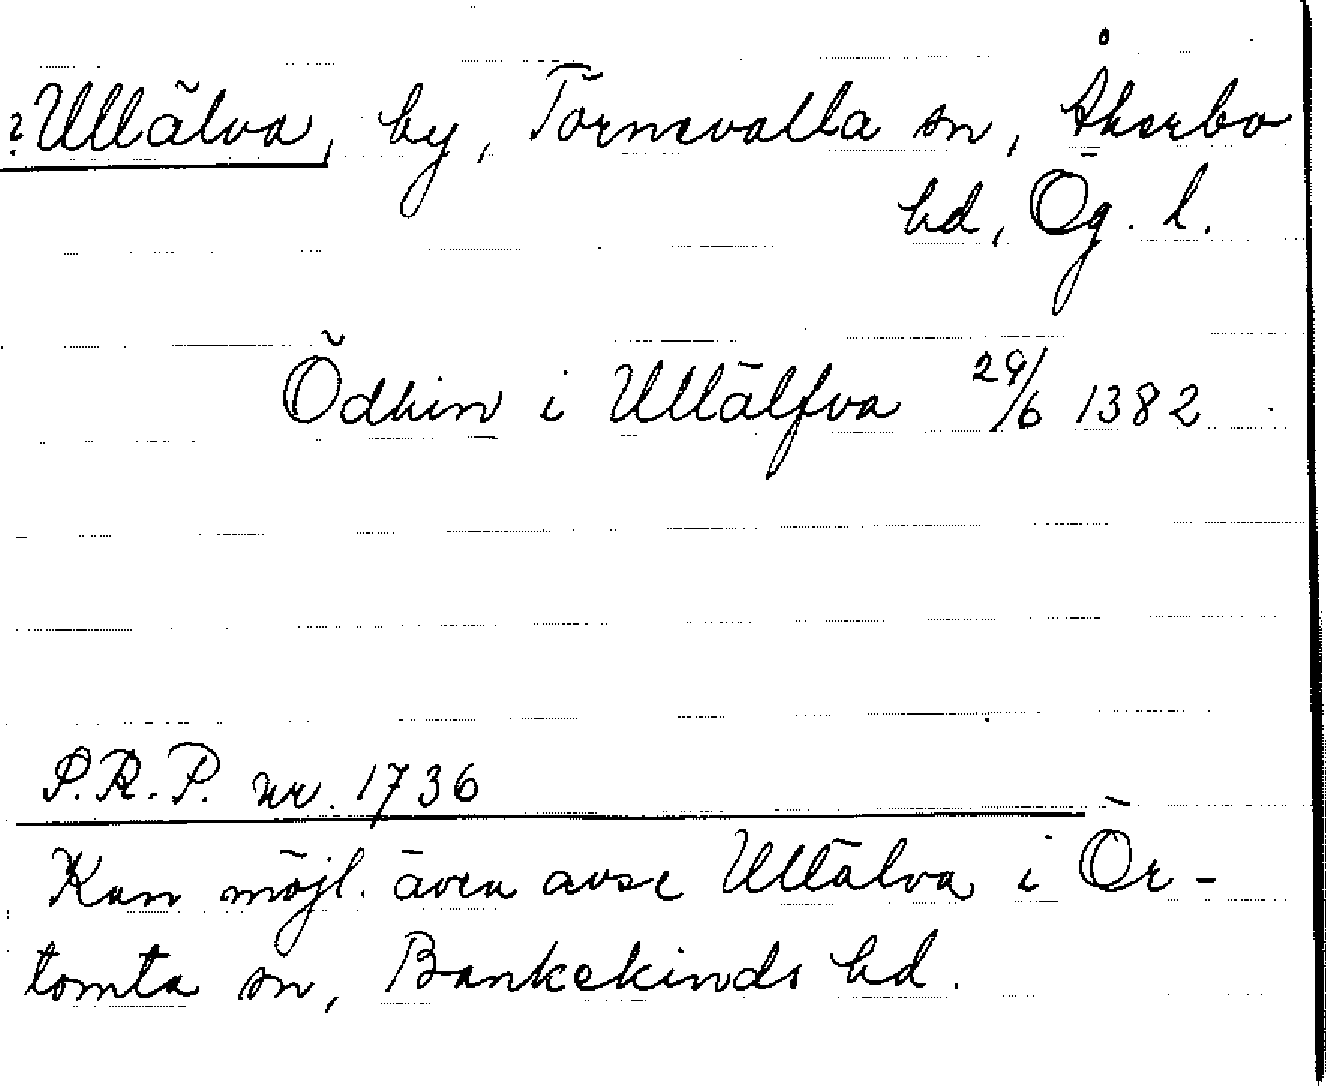 ?Ullälva, by, Törnevalla sn, Åkerbo
hd, Ög. l.
Ödhin i Ullälfva 29/6 1382
S.R.P. nr. 1736
Kan möjl. även avse Ullälva i Ör-
tomta sn, Bankekinds hd.